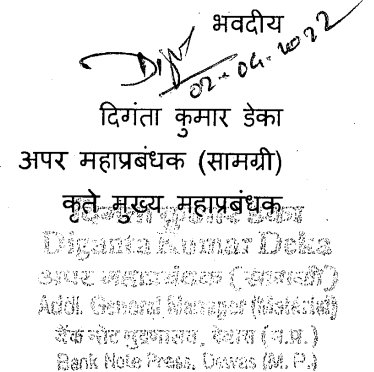 भवदीय
02-04-2022
दिगंता कुमार डेका
अपर महाप्रबंधक (सामग्री)
कृते मुख्य महाप्रबंधक
दिगंता कुमार डेका
Diganta Kumar Deka
अपर महाप्रबंधक (सामग्री)
Addl. General Manager (Material)
बैंक नोट मुद्रणालय, देवास (म.प्र.)
Bank Note Press, Dewas (M. P.)